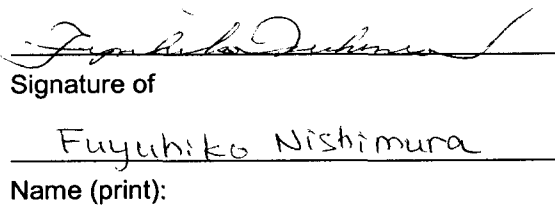 Signature of
Fuyuhiko Nishimura
Name (print):